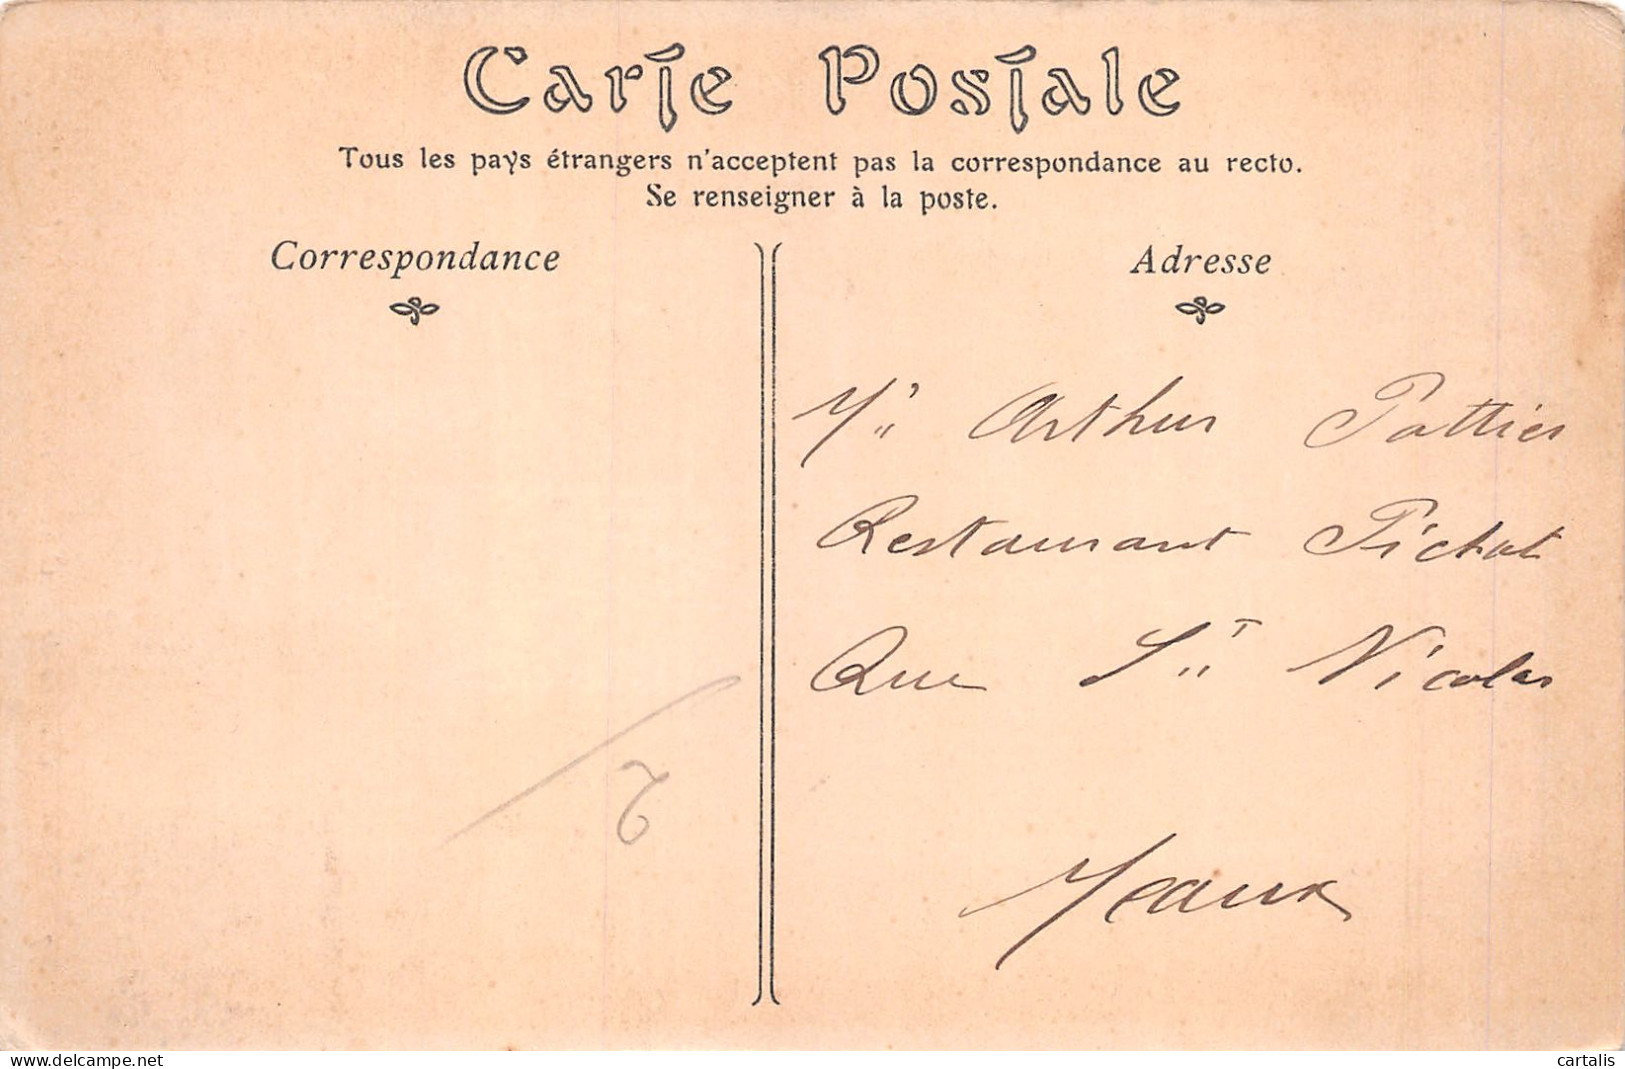 Carte Postale
Tous les pays étrangers n'acceptent pas la correspondance au recto.
Se renseigner à la poste.
Correspondance
Adresse
Mr Arthur Pottier
Restaurant Pichot
Rue St Nicolas
Meaux
delcampe.net
cartalis